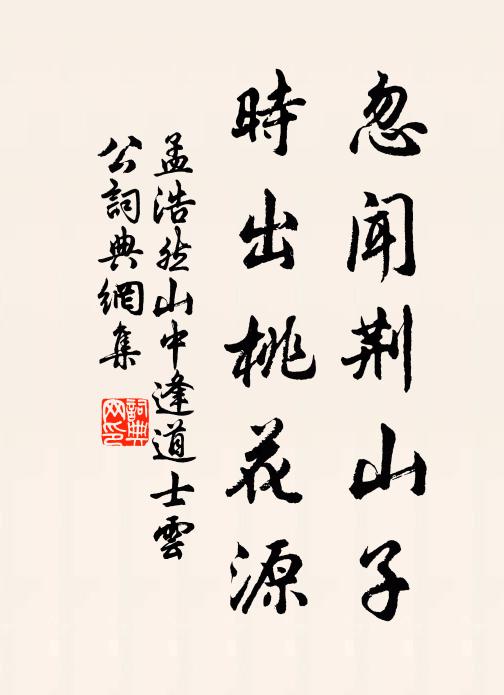 忽闻荆山子
時出桃花源
孟浩然山中逢道士雲
公詞典網集
詞典
网印